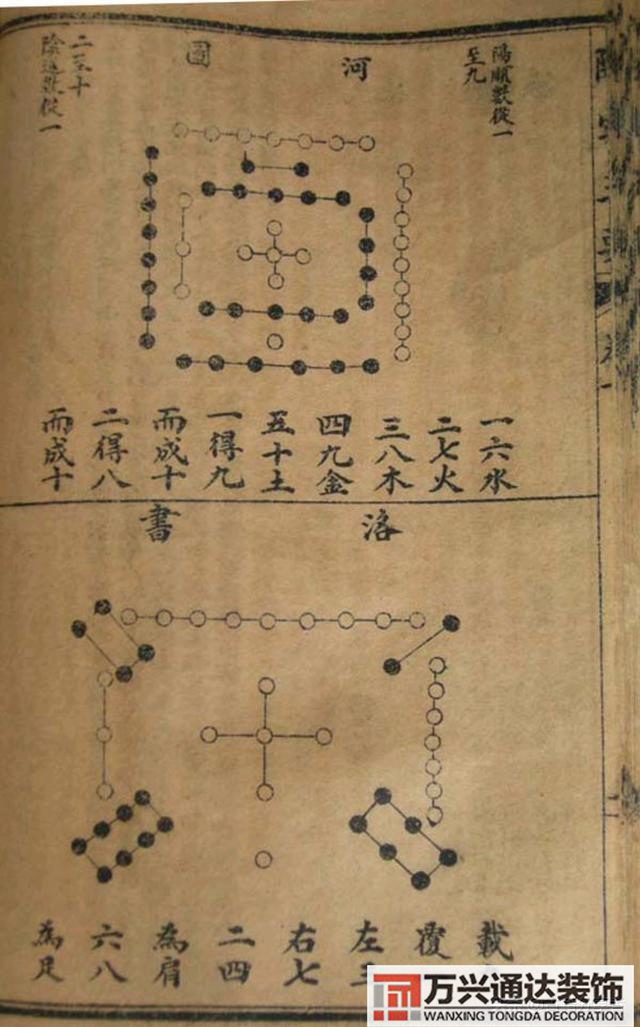 陽順數從一
至九
河圖
二至十
陰逆數從一
一六水
二七火
三八木
四九金
五十土
一得九
而成十
二得八
而成十
洛書
載
覆
左三
右七
二四
為肩
六八
為足
万兴通达装饰
WANXING TONGDA DECORATION